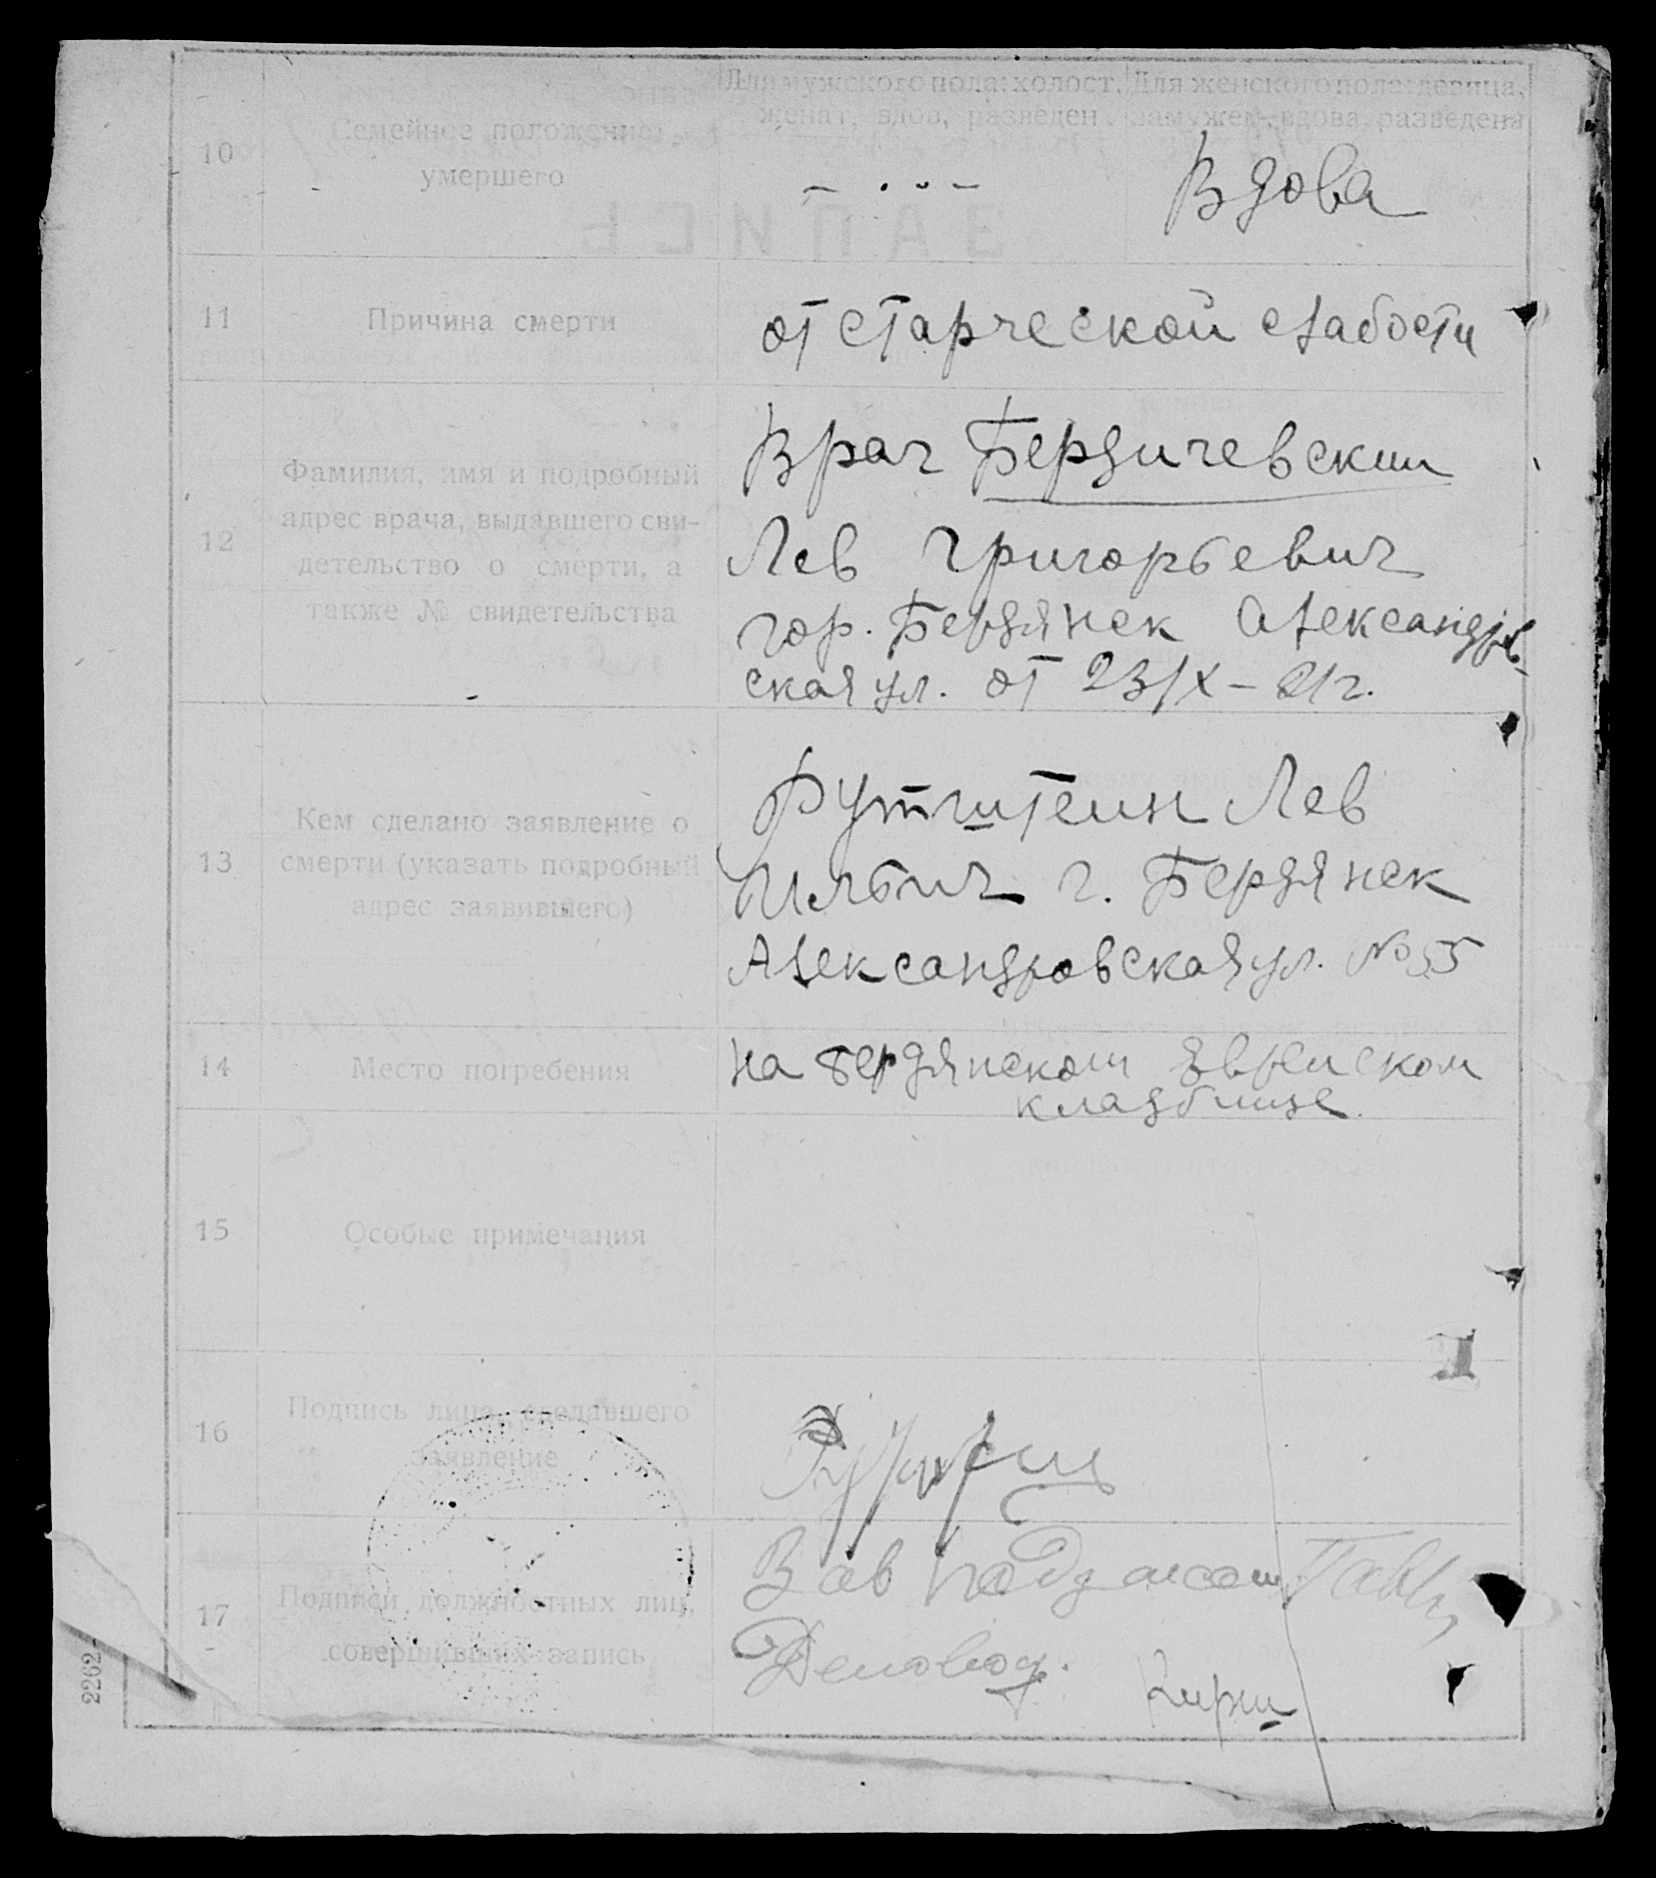 Для мужского пола: холост, женат, вдов, разведен
Для женского пола: девица, замужем, вдова, разведена
10
Семейное положение
умершего
Вдова
11
Причина смерти
от старческой слабости
12
Фамилия, имя и подробный
адрес врача, выдавшего сви-
детельство о смерти, а
также № свидетельства
Врач Бердичевский
Лев Григорьевич
гор. Бердянск Александров-
ская ул. от 23/X – 21 г.
13
Кем сделано заявление о
смерти (указать подробный
адрес заявившего)
Рутштейн Лев
Ильич г. Бердянск
Александровская ул. № 55
14
Место погребения
на бердянском еврейском
кладбище
15
Особые примечания
16
Подпись лица, сделавшего
заявление
17
Подписи должностных лиц,
совершивших запись
Зав подзагсом
Деловод.
2262
ЗАПИСЬ